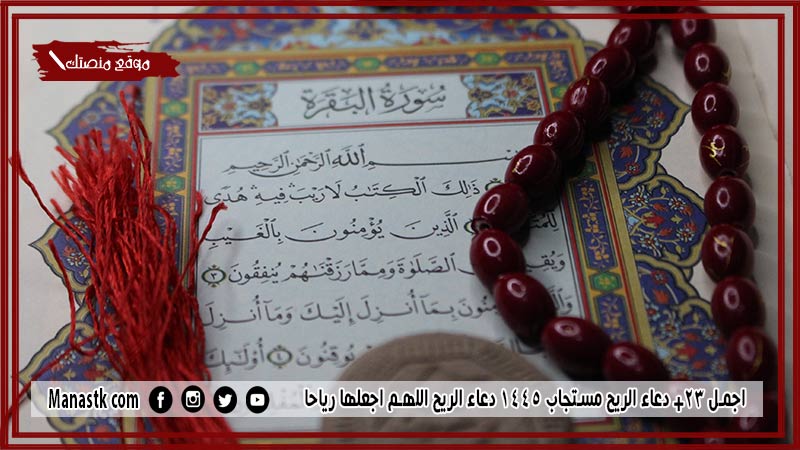 موقع منصتك
سُورَةُ البَقَرَةِ
اللَّهِ الرَّحْمَٰنِ الرَّحِيمِ
ذَٰلِكَ الْكِتَٰبُ لَا رَيْبَ فِيهِ هُدًى
الَّذِينَ يُؤْمِنُونَ بِالْغَيْبِ
الصَّلَوٰةَ وَمِمَّا رَزَقْنَٰهُمْ يُنفِقُونَ ٣
بِمَآ أُنزِلَ إِلَيْكَ وَمَآ أُنزِلَ
يُوقِنُونَ ٤ أُو۟لَٰٓئِكَ
اجمل ٢٣+ دعاء الريح مستجاب ١٤٤٥ دعاء الريح اللهم اجعلها رياحا
Manastk com